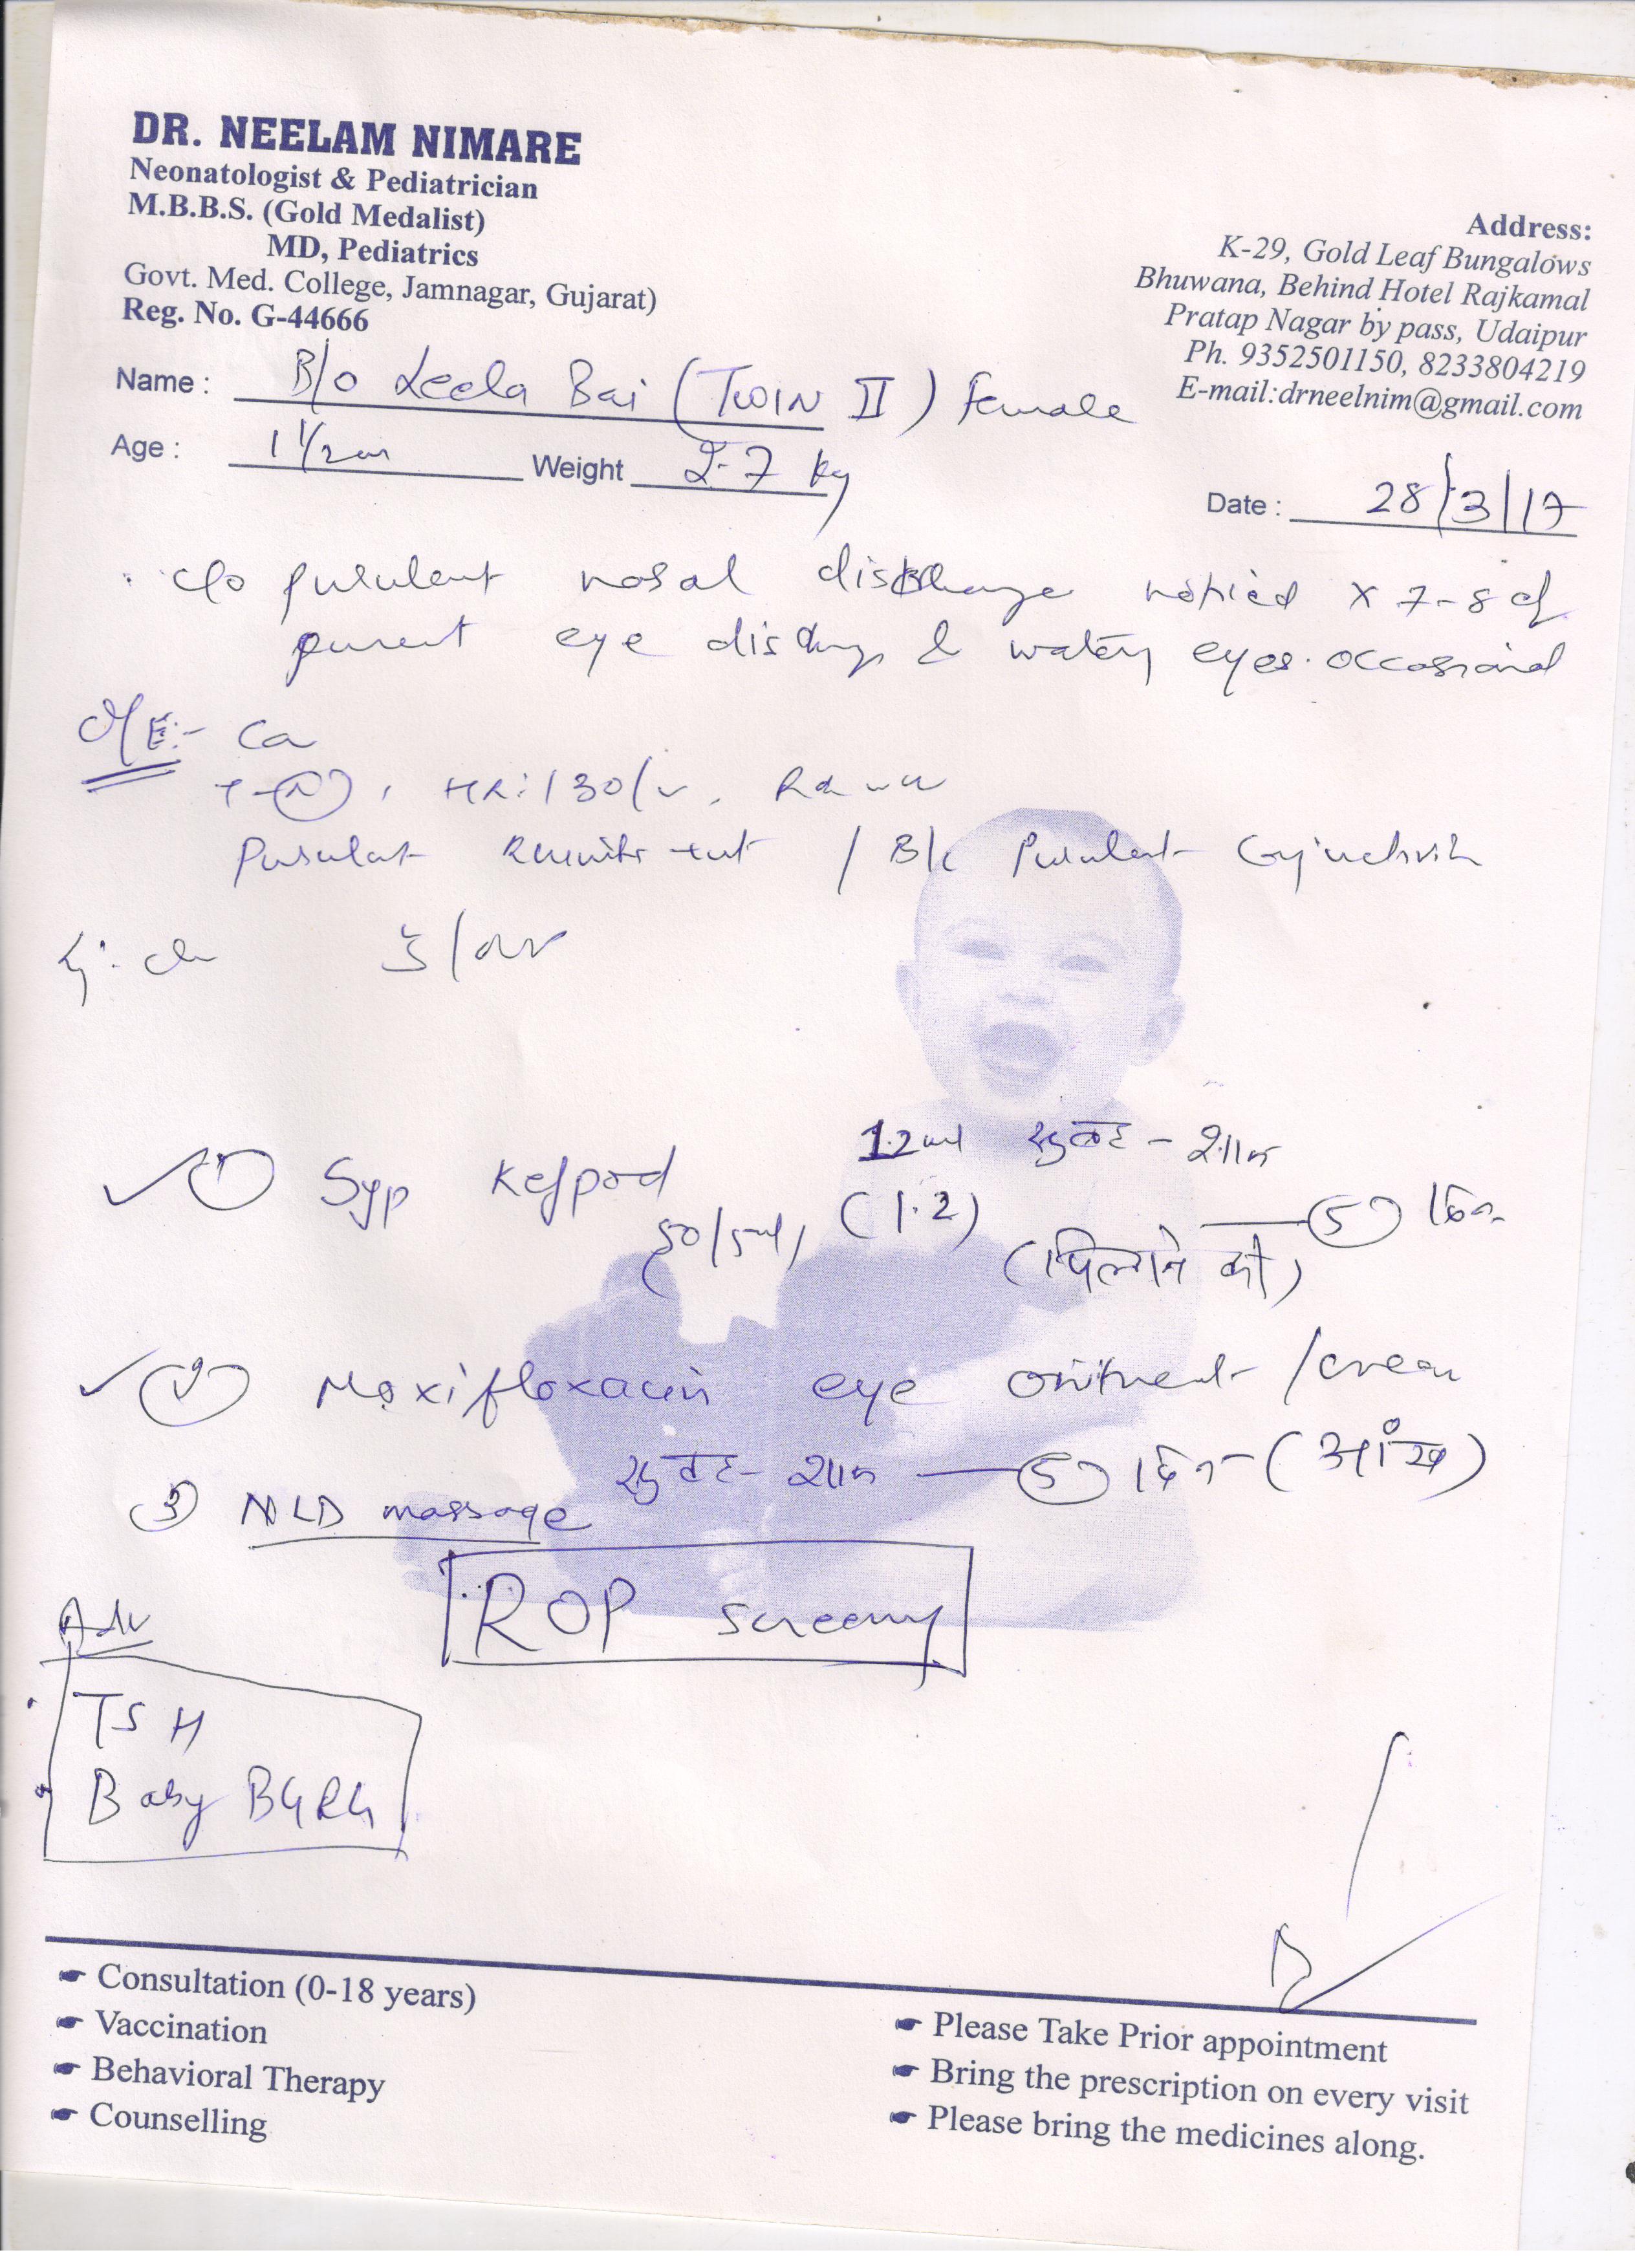 DR. NEELAM NIMARE
Neonatologist & Pediatrician
M.B.B.S. (Gold Medalist)
MD, Pediatrics
Govt. Med. College, Jamnagar, Gujarat)
Reg. No. G-44666
Address:
K-29, Gold Leaf Bungalows
Bhuwana, Behind Hotel Rajkamal
Pratap Nagar by pass, Udaipur
Ph. 9352501150, 8233804219
E-mail:drneelnim@gmail.com
Name : B/o Leela Bai (TWIN II) female
Age : 1 1/2m Weight 2.7 kg
Date : 28/3/17
c/o purulent nasal discharge noticed x 7-8 d
eye & watery eyes. occasional
O/E:-
HR: 130/
Purulent / B/L Purulent
1.2 ml सुबह - शाम
① Syp Kefpod (1.2) 5 दिन
50/5ml, (पिलाने की)
② Moxifloxacin eye ointment / cream
सुबह - शाम 5 दिन - (आँख)
③ NLD massage
ROP screening
Adv
TSH
Baby BGRh
Consultation (0-18 years)
Vaccination
Behavioral Therapy
Counselling
Please Take Prior appointment
Bring the prescription on every visit
Please bring the medicines along.